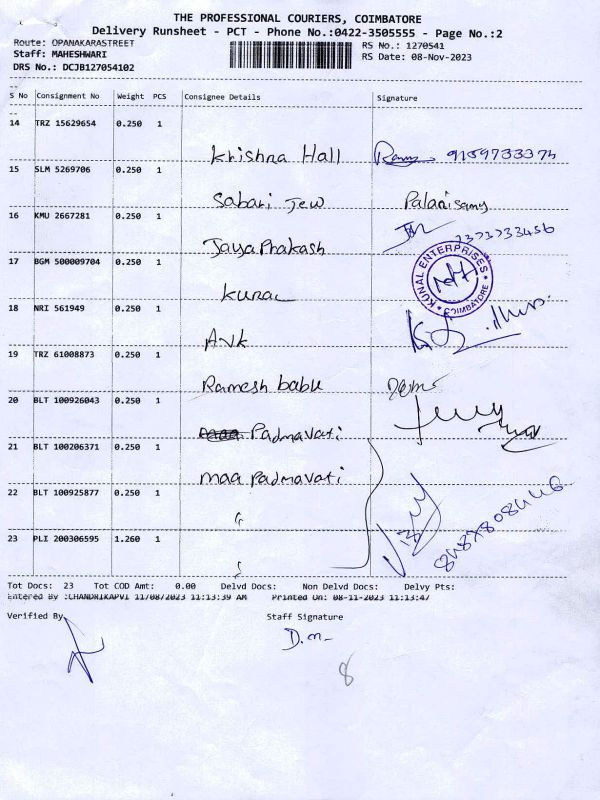 THE PROFESSIONAL COURIERS, COIMBATORE
Delivery Runsheet - PCT - Phone No.:0422-3505555 - Page No.:2
Route: OPANAKARASTREET
RS No.: 1270541
Staff: MAHESHWARI
RS Date: 08-Nov-2023
DRS No.: DCJB127054102
S No Consignment No Weight PCS Consignee Details Signature
14 TRZ 15629654 0.250 1
Krishna Hall
15 SLM 5269706 0.250 1
Sabari Jew Palanisamy
16 KMU 2667281 0.250 1
Jaya Prakash
KUNAL ENTERPRISES
COIMBATORE
17 BGM 500009704 0.250 1
Kunal
18 NRI 561949 0.250 1
AVK
19 TRZ 61008873 0.250 1
Ramesh babu
20 BLT 100926043 0.250 1
Padmavati
21 BLT 100206371 0.250 1
maa Padmavati
22 BLT 100925877 0.250 1
23 PLI 200306595 1.260 1
Tot Docs: 23 Tot COD Amt: 0.00 Delvd Docs: Non Delvd Docs: Delvy Pts:
Entered By :CHANDRIKAPVI 11/08/2023 11:13:39 AM Printed On: 08-11-2023 11:13:47
Verified By Staff Signature
D.m
8